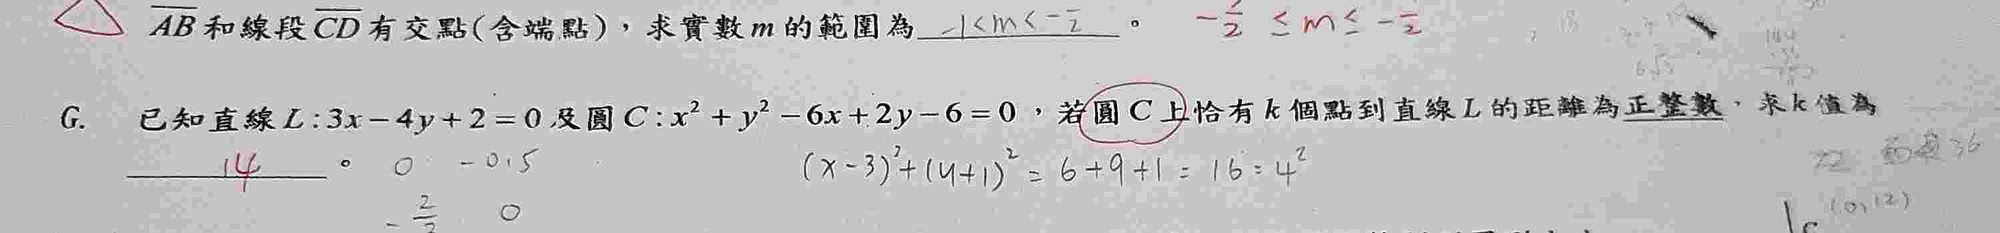 AB和線段CD有交點(含端點)，求實數m的範圍為 -1<m<-1/2 。 ≤ m ≤
G. 已知直線L:3x-4y+2=0及圓C:x²+y²-6x+2y-6=0，若圓C上恰有k個點到直線L的距離為正整數，求k值為
14 。 0 -0.5 (x-3)²+(y+1)²=6+9+1=16=4²
0
(0,12)